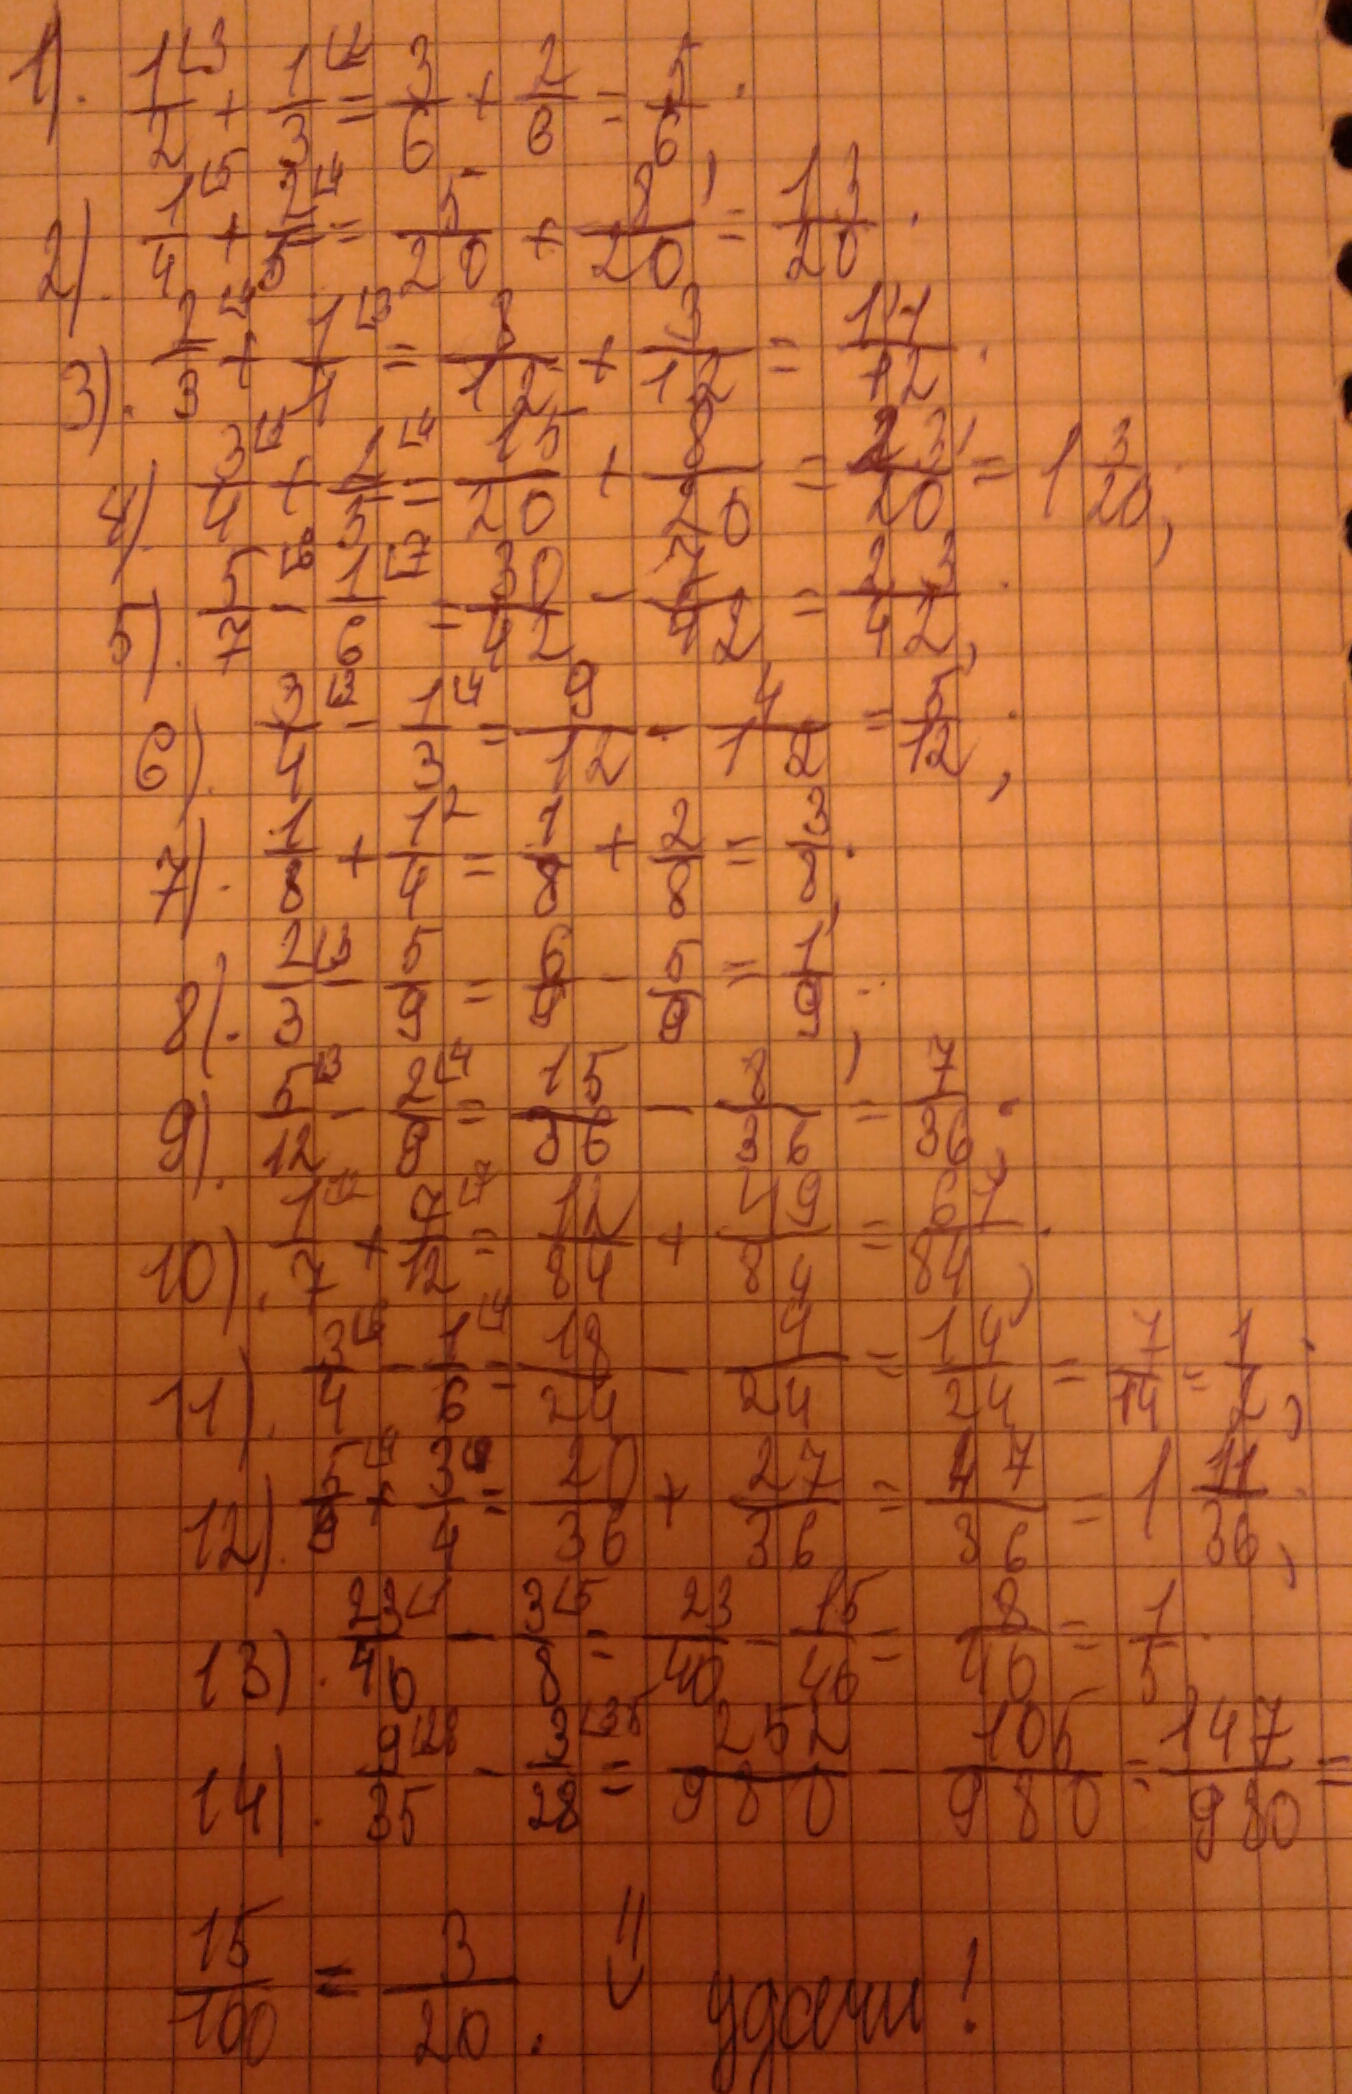 1). 1/2 + 1/3 = 3/6 + 2/6 = 5/6;
2). 1/4 + 2/5 = 5/20 + 8/20 = 13/20;
3). 2/3 + 1/1 = 8/12 + 3/12 = 11/12;
4) 3/4 + 2/5 = 15/20 + 8/20 = 23/20 = 1 3/20;
5). 5/7 - 1/6 = 30/42 - 7/42 = 23/42;
6). 3/4 - 1/3 = 9/12 - 4/12 = 5/12;
7). 1/8 + 1/4 = 1/8 + 2/8 = 3/8;
8). 2/3 - 5/9 = 6/9 - 5/9 = 1/9;
9). 5/12 - 2/9 = 15/36 - 8/36 = 7/36;
10). 1/7 + 7/12 = 12/84 + 49/84 = 61/84;
11). 3/4 - 1/6 = 18/24 - 4/24 = 14/24 = 7/14 = 1/2;
12). 5/9 + 3/4 = 20/36 + 27/36 = 47/36 = 1 11/36;
13). 23/40 - 3/8 = 23/40 - 15/40 = 8/40 = 1/5
14). 9/35 - 3/28 = 252/980 - 105/980 = 147/980 =
15/100 = 3/20. удачи!